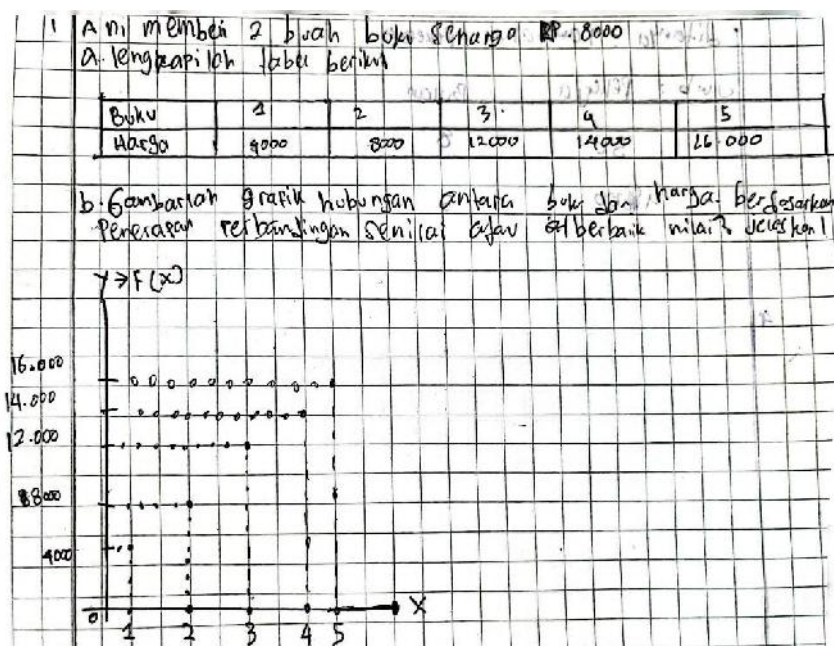 1 Ani membeli 2 buah buku seharga RP. 8000
a. lengkapilah tabel berikut
Buku 1 2 3 4 5
Harga 4000 8000 12000 14000 16.000
b. Gambarlah grafik hubungan antara buku dan harga. berdasarkan
Penerapan perbandingan senilai atau berbalik nilai? jelaskan!
Y → F(X)
16.000
14.000
12.000
8000
4000
0 1 2 3 4 5 X